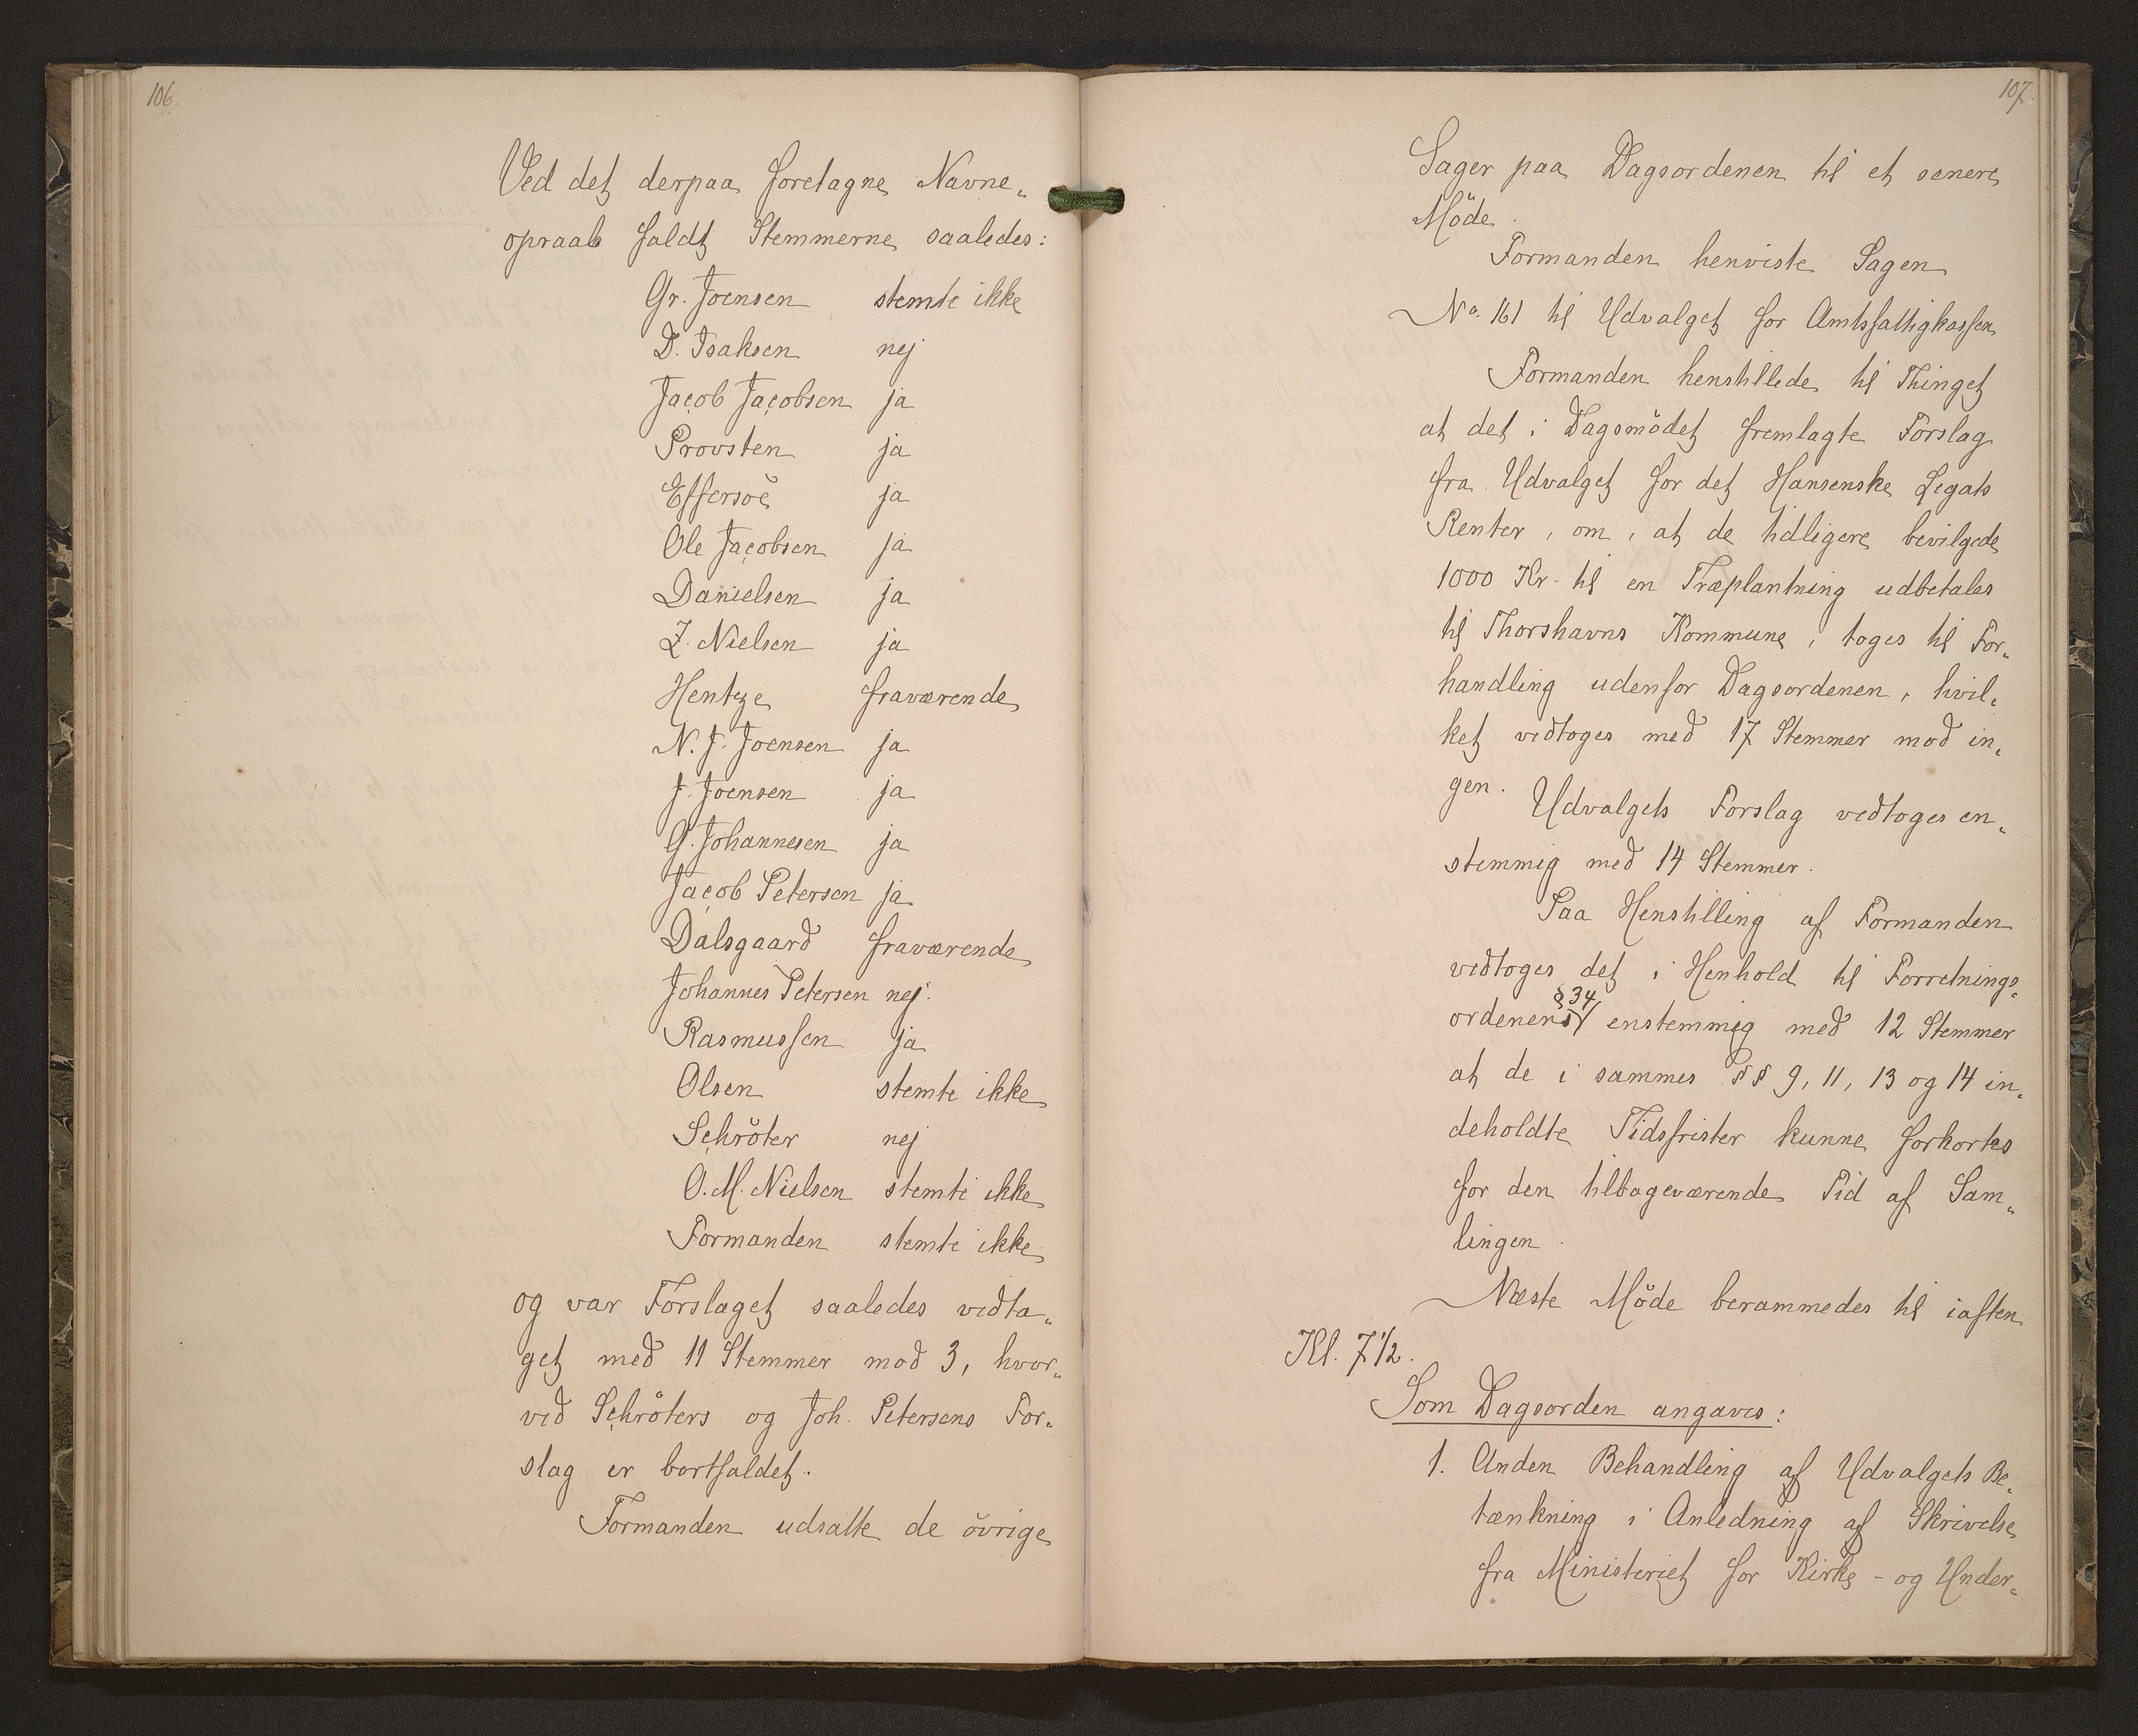 106.
Ved det derpaa foretagne Navne„
opraab faldt Stemmerne saaledes:
Gr. Joensen stemte ikke
D. Isaksen nej
Jacob Jacobsen ja
Provsten ja
Effersöe ja
Ole Jacobsen ja
Danielsen ja
Z. Nielsen ja
Hentze fraværende
N. J. Joensen ja
J. Joensen ja
G. Johannesen ja
Jacob Petersen ja
Dalsgaard fraværende
Johannes Petersen nej.
Rasmussen ja
Olsen stemte ikke
Schröter nej
O. M. Nielsen stemte ikke
Formanden stemte ikke
og var Forslaget saaledes vedta„
get med 11 Stemmer mod 3, hvor„
ved Schröters og Joh. Petersens For„
slag er bortfaldet.
Formanden udsatte de övrige
107.
Sager paa Dagsordenen til et senere
Möde.
Formanden henviste Sagen
No. 161 til Udvalget for Amtsfattigkassen
Formanden henstillede til Thinget
at det i Dagsmödet fremlagte Forslag
fra Udvalget for det Hansenske Legats
Renter, om, at de tidligere bevilgede
1000 Kr. til en Træplantning udbetales
til Thorshavns Kommune, toges til For„
handling udenfor Dagsordenen, hvil„
ket vedtoges med 17 Stemmer mod in„
gen. Udvalgets Forslag vedtoges en„
stemmig med 14 Stemmer.
Paa Henstilling af Formanden
vedtoges det i Henhold til Forretnings„
ordenens § 34 enstemmig med 12 Stemmer
at de i sammes §§ 9, 11, 13 og 14 in„
deholdte Tidsfrister kunne forkortes
for den tilbageværende Tid af Sam„
lingen.
Næste Möde berammedes til iaften
Kl. 7 1/2.
Som Dagsorden angaves:
1. Anden Behandling af Udvalgets Be„
tænkning i Anledning af Skrivelse
fra Ministeriet for Kirke- og Under„